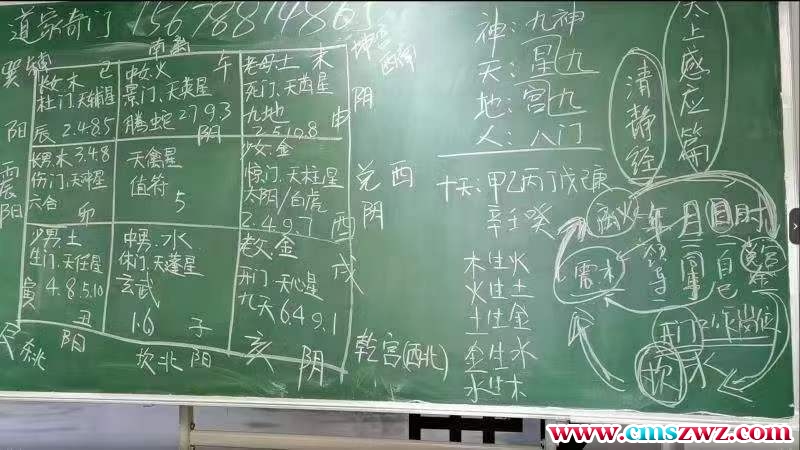 道家奇门
南离
巽
坤宫
西南
长女木 巳
杜门、天辅星
辰 2.4.8.5
中女火 午
景门、天英星
腾蛇 2793
阴
老母土 未
死门、天芮星
九地
2.5.10.8
申
阴
阳
震
阳
长男:木 3.4.8
伤门、天冲星
六合
卯
天禽星
值符 5
少女:金
惊门、天柱星
太阴/白虎
2.4.9.7
兑 西
阴
酉
戌
少男:土
生门、天任星
寅 4.8.5.10
丑
中男:水
休门、天蓬星
玄武
1.6 子
老父:金
开门、天心星
九天 6.4.9.1
阳
坎北 阳
亥 阴
乾宫(西北)
神:九神
天:星九
地:宫九
人:八门
清静经
太上感应篇
十天:甲乙丙丁戊己庚
辛壬癸
木生火
火生土
土生金
金生水
水生木
离火 年 月 日 时
领导 同事 自己
开门 工作岗位
坎 水
www.cmszwz.com